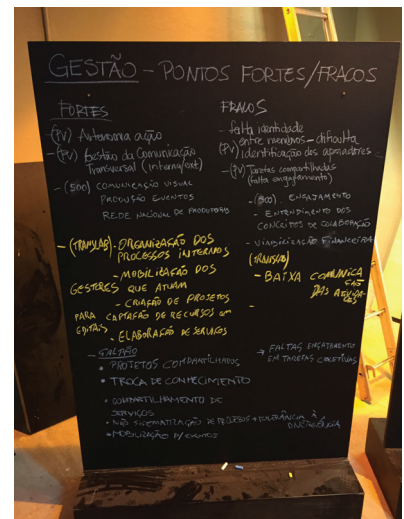 GESTÃO - PONTOS FORTES/FRACOS
FORTES
- (PV) Autonomia ação
- (PV) Gestão da Comunicação
Transversal (interna/ext)
- (500) COMUNICAÇÃO VISUAL
PRODUÇÃO EVENTOS
REDE NACIONAL DE PRODUTORES
- (TRANSLAB) - ORGANIZAÇÃO DOS
PROCESSOS INTERNOS
- MOBILIZAÇÃO DOS
GESTORES QUE ATUAM
- CRIAÇÃO DE PROJETOS
PARA CAPTAÇÃO DE RECURSOS em
EDITAIS
- ELABORAÇÃO DE SERVIÇOS
- GALPÃO
• PROJETOS COMPARTILHADOS
• TROCA DE CONHECIMENTO
• COMPARTILHAMENTO DE
SERVIÇOS
• NÃO SISTEMATIZAÇÃO DE PROCESSOS + TOLERÂNCIA À
DIVERGÊNCIA
• MOBILIZAÇÃO P/ EVENTOS
FRACOS
- falta identidade
entre membros - dificulta
(PV) identificação dos apoiadores
- (PV) Tarefas compartilhadas
(falta engajamento)
- (500) ENGAJAMENTO
- ENTENDIMENTO DOS
CONCEITOS DE COLABORAÇÃO
- VIABILIZAÇÃO FINANCEIRA
(TRANSLAB)
- BAIXA COMUNICA
ÇÃO
DAS
→ FALTAS ENGAJAMENTO
EM TAREFAS COLETIVAS